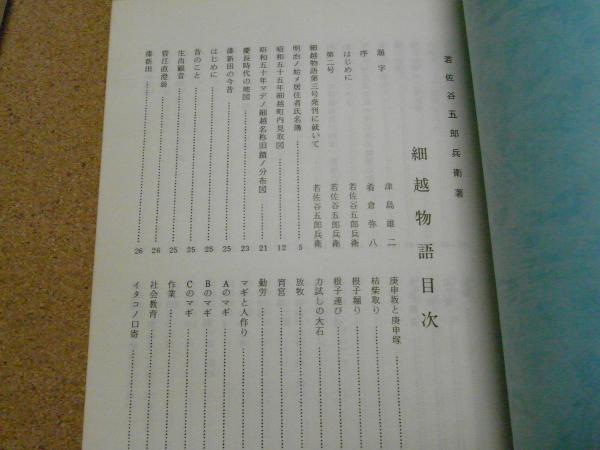 若佐谷五郎兵衛著
細越物語目次
題字 津島雄二
序 肴倉弥八
はじめに 若佐谷五郎兵衛
第二号 若佐谷五郎兵衛
細越物語第三号発刊に就いて 若佐谷五郎兵衛
明治ノ始メ居住者氏名簿 5
昭和五十五年細越町内見取図 12
昭和五十年マデノ細越名称旧蹟ノ分布図 21
慶長時代の地図 23
漆新田の今昔 25
はじめに 25
昔のこと 25
生出観音 25
菅江真澄翁 26
漆新田 26
庚申坂と庚申塚
枯柴取り
根子堀り
根子運び
力試しの大石
放牧
宵宮
動労
マギと人作り
Aのマギ
Bのマギ
Cのマギ
作業
社会教育
イタコノ口寄